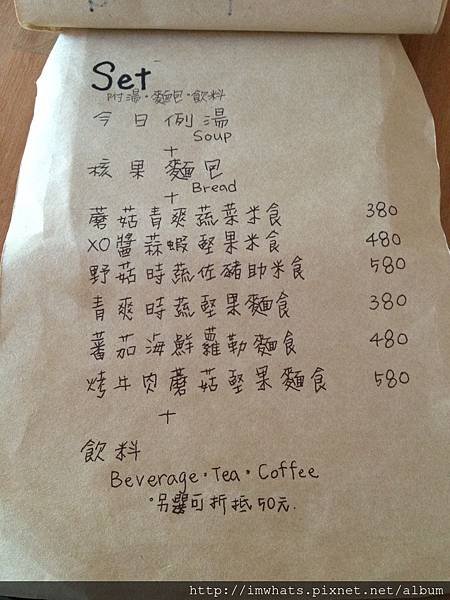 Set
附湯·麵包·飲料
今日例湯
Soup
+
核果麵包
Bread
+
蘑菇青爽蔬菜米食 380
XO醬蒜蝦堅果米食 480
野菇時蔬佐豬助米食 580
青爽時蔬堅果麵食 380
蕃茄海鮮蘿勒麵食 480
烤牛肉蘑菇堅果麵食 580
+
飲料
Beverage·Tea·Coffee
另選可折抵50元.
http://imwhats.pixnet.net/album